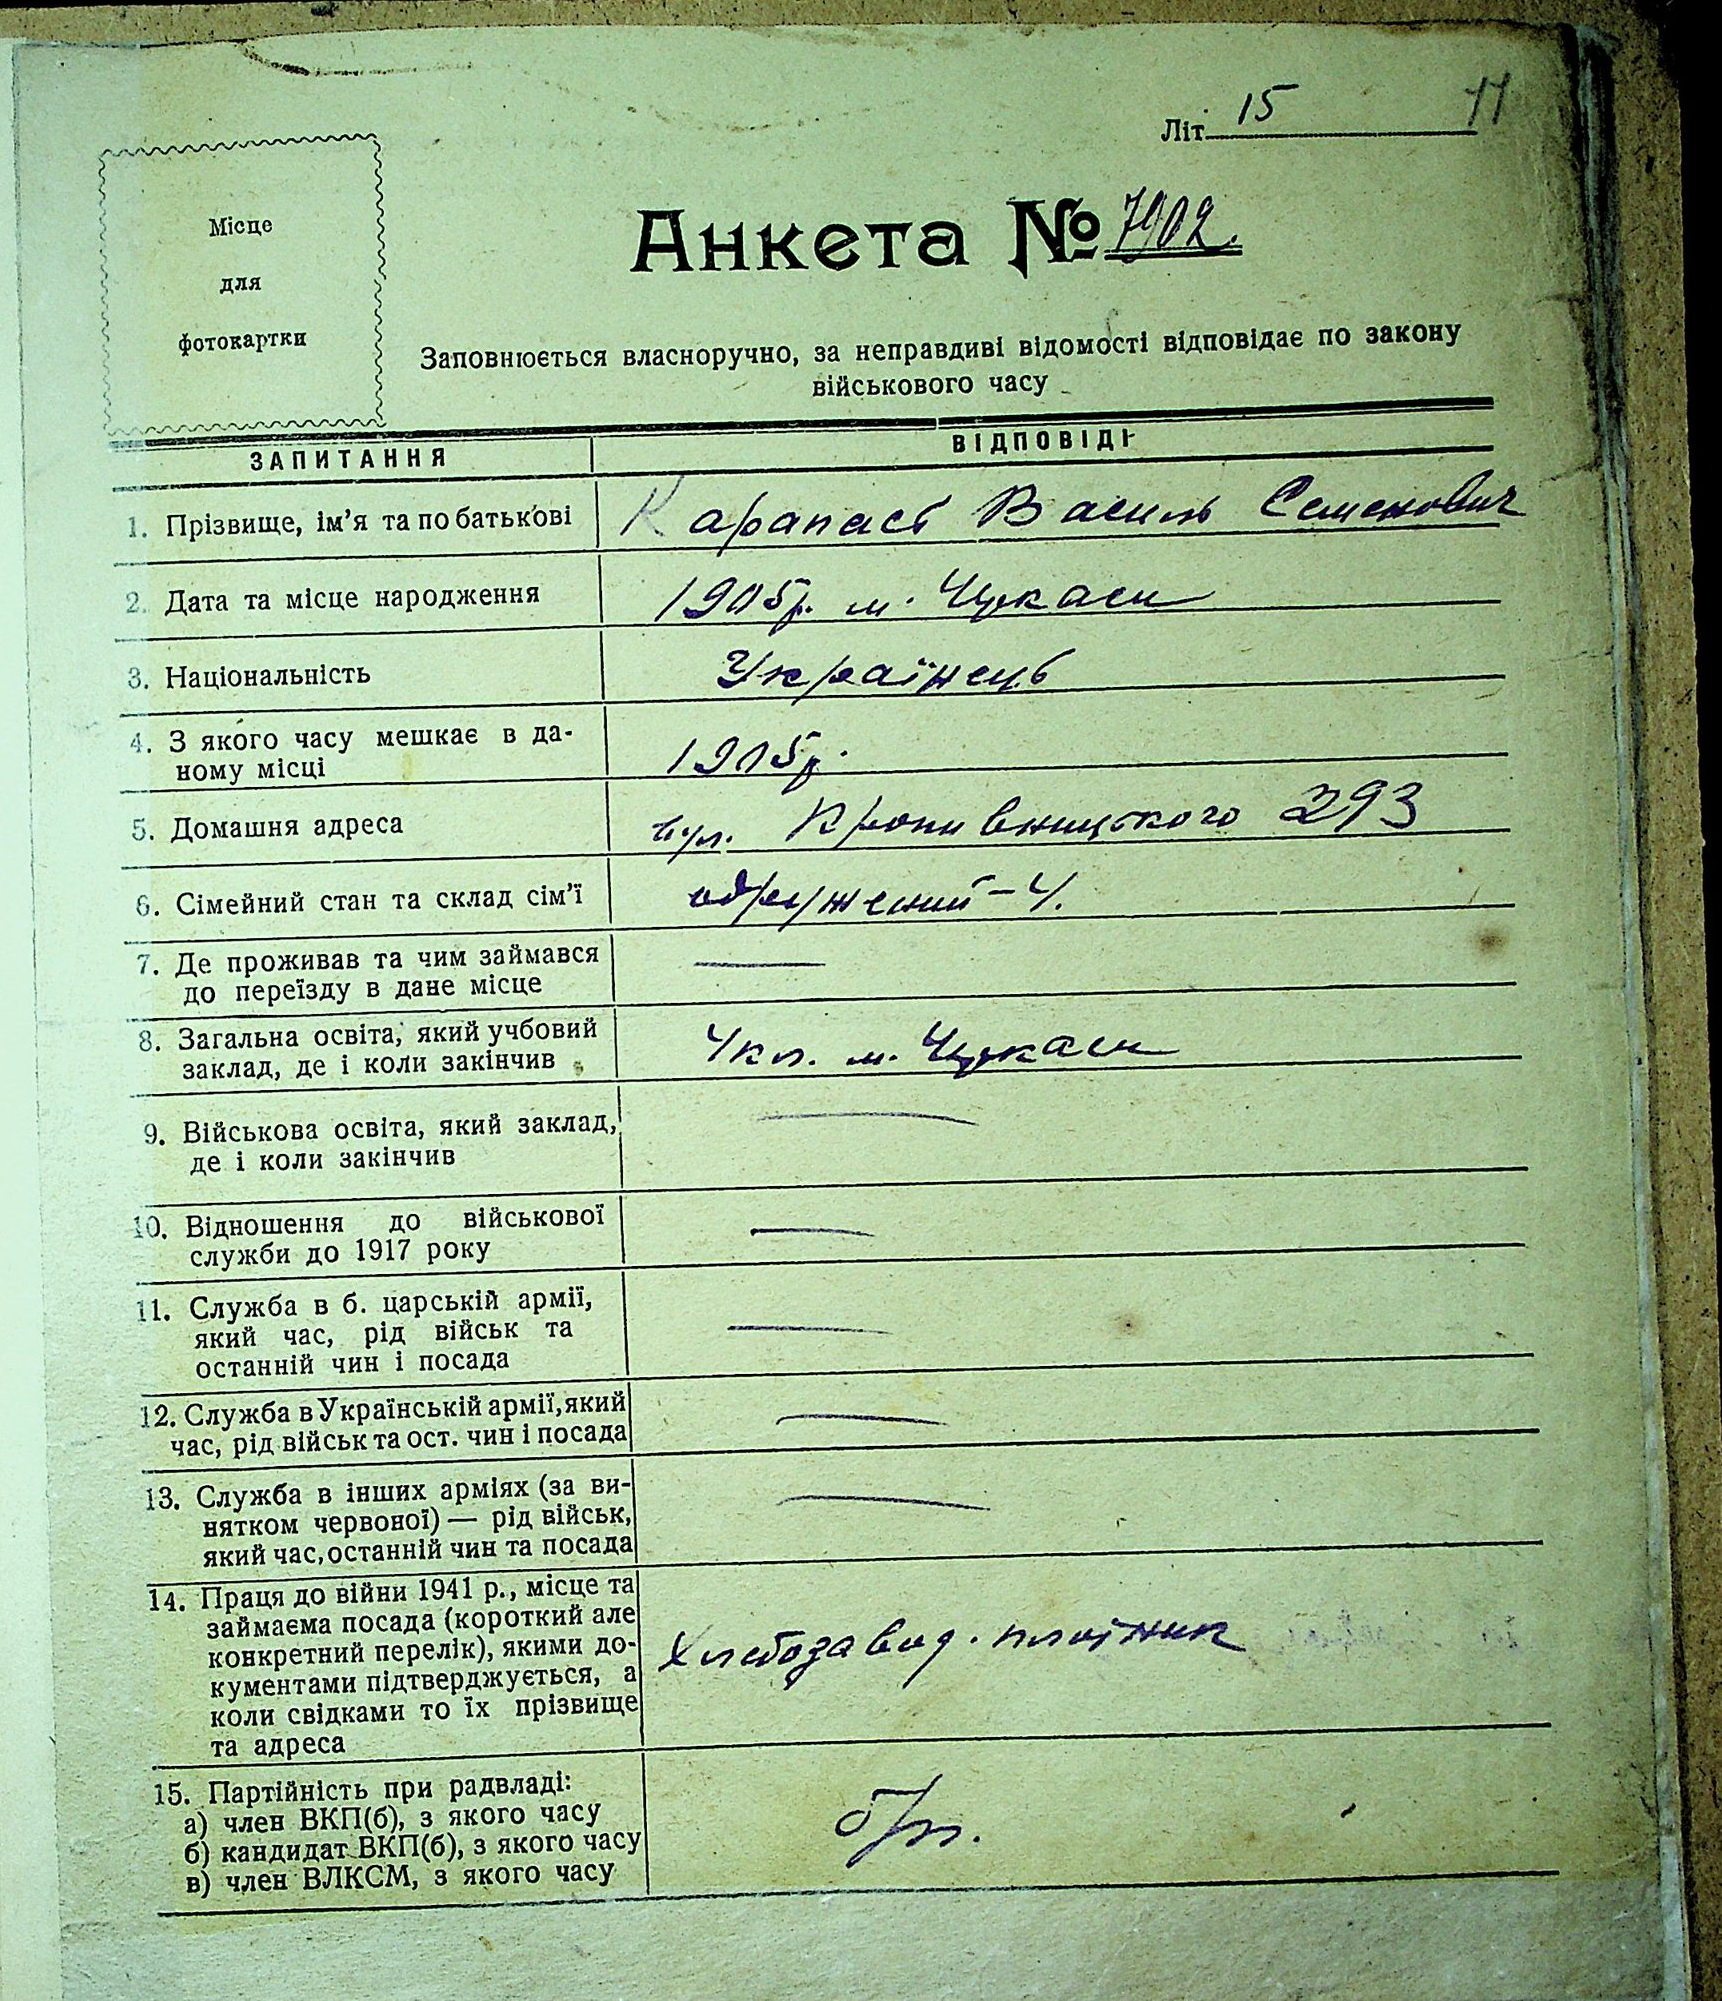 Літ. 15 11
Місце
для
фотокартки
Анкета № 7902.
Заповнюється власноручно, за неправдиві відомості відповідає по закону
військового часу
ЗАПИТАННЯ ВІДПОВІДІ
1. Прізвище, ім'я та по батькові Карапась Василь Семенович
2. Дата та місце народження 1905р. м. Черкаси
3. Національність Українець
4. З якого часу мешкає в да-
ному місці 1905р.
5. Домашня адреса вул. Кропивницького 293
6. Сімейний стан та склад сім'ї одружений – 4.
7. Де проживав та чим займався
до переїзду в дане місце —
8. Загальна освіта, який учбовий
заклад, де і коли закінчив 4кл. м. Черкаси
9. Військова освіта, який заклад,
де і коли закінчив —
10. Відношення до військової
служби до 1917 року —
11. Служба в б. царській армії,
який час, рід військ та
останній чин і посада —
12. Служба в Українській армії, який
час, рід військ та ост. чин і посада —
13. Служба в інших арміях (за ви-
нятком червоної) — рід військ,
який час, останній чин та посада —
14. Праця до війни 1941 р., місце та
займаєма посада (короткий але
конкретний перелік), якими до-
кументами підтверджується, а
коли свідками то їх прізвище
та адреса
Хлебозавод. плотник
15. Партійність при радвладі:
а) член ВКП(б), з якого часу
б) кандидат ВКП(б), з якого часу
в) член ВЛКСМ, з якого часу
б/п.